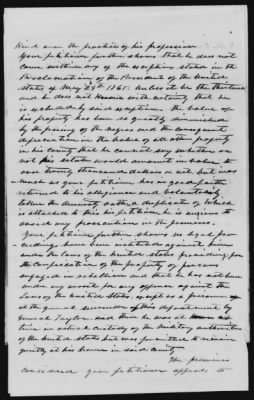 and in the practice of his profession
Your petitioner further shows that he does not
come within any of the exceptions stated in the
Proclamation of the President of the United
States of May 29th 1865. Unless it be the thirteenth
and he does not know with certainty that he
is excluded by said exception. The value of
his property has been so greatly diminished
by the freeing of the negroes and the consequent
depreciation in the value of all other property
in his county that he cannot say whether or
not his estate would amount in value to
over twenty thousand dollars or not. but in as
much as your petitioner has in good faith
returned to his allegiance and voluntarily
taken the Amnesty oath a duplicate of which
is attached to this his petition, he is anxious to
avoid any prosecution in the premises.
Your petitioner further shows no legal pro-
ceedings have been instituted against him
under the laws of the United States providing for
the confiscation of the property of persons
engaged in rebellion and that he has not been
under any arrest for any offence against the
Laws of the United States except as a prisoner
at the general surrender of this department by
General Taylor. and then he was at no
time in actual custody of the Military authorities
of the United States but was permitted to remain
quietly at his home in said County
The premises
considered your petitioner appeals to